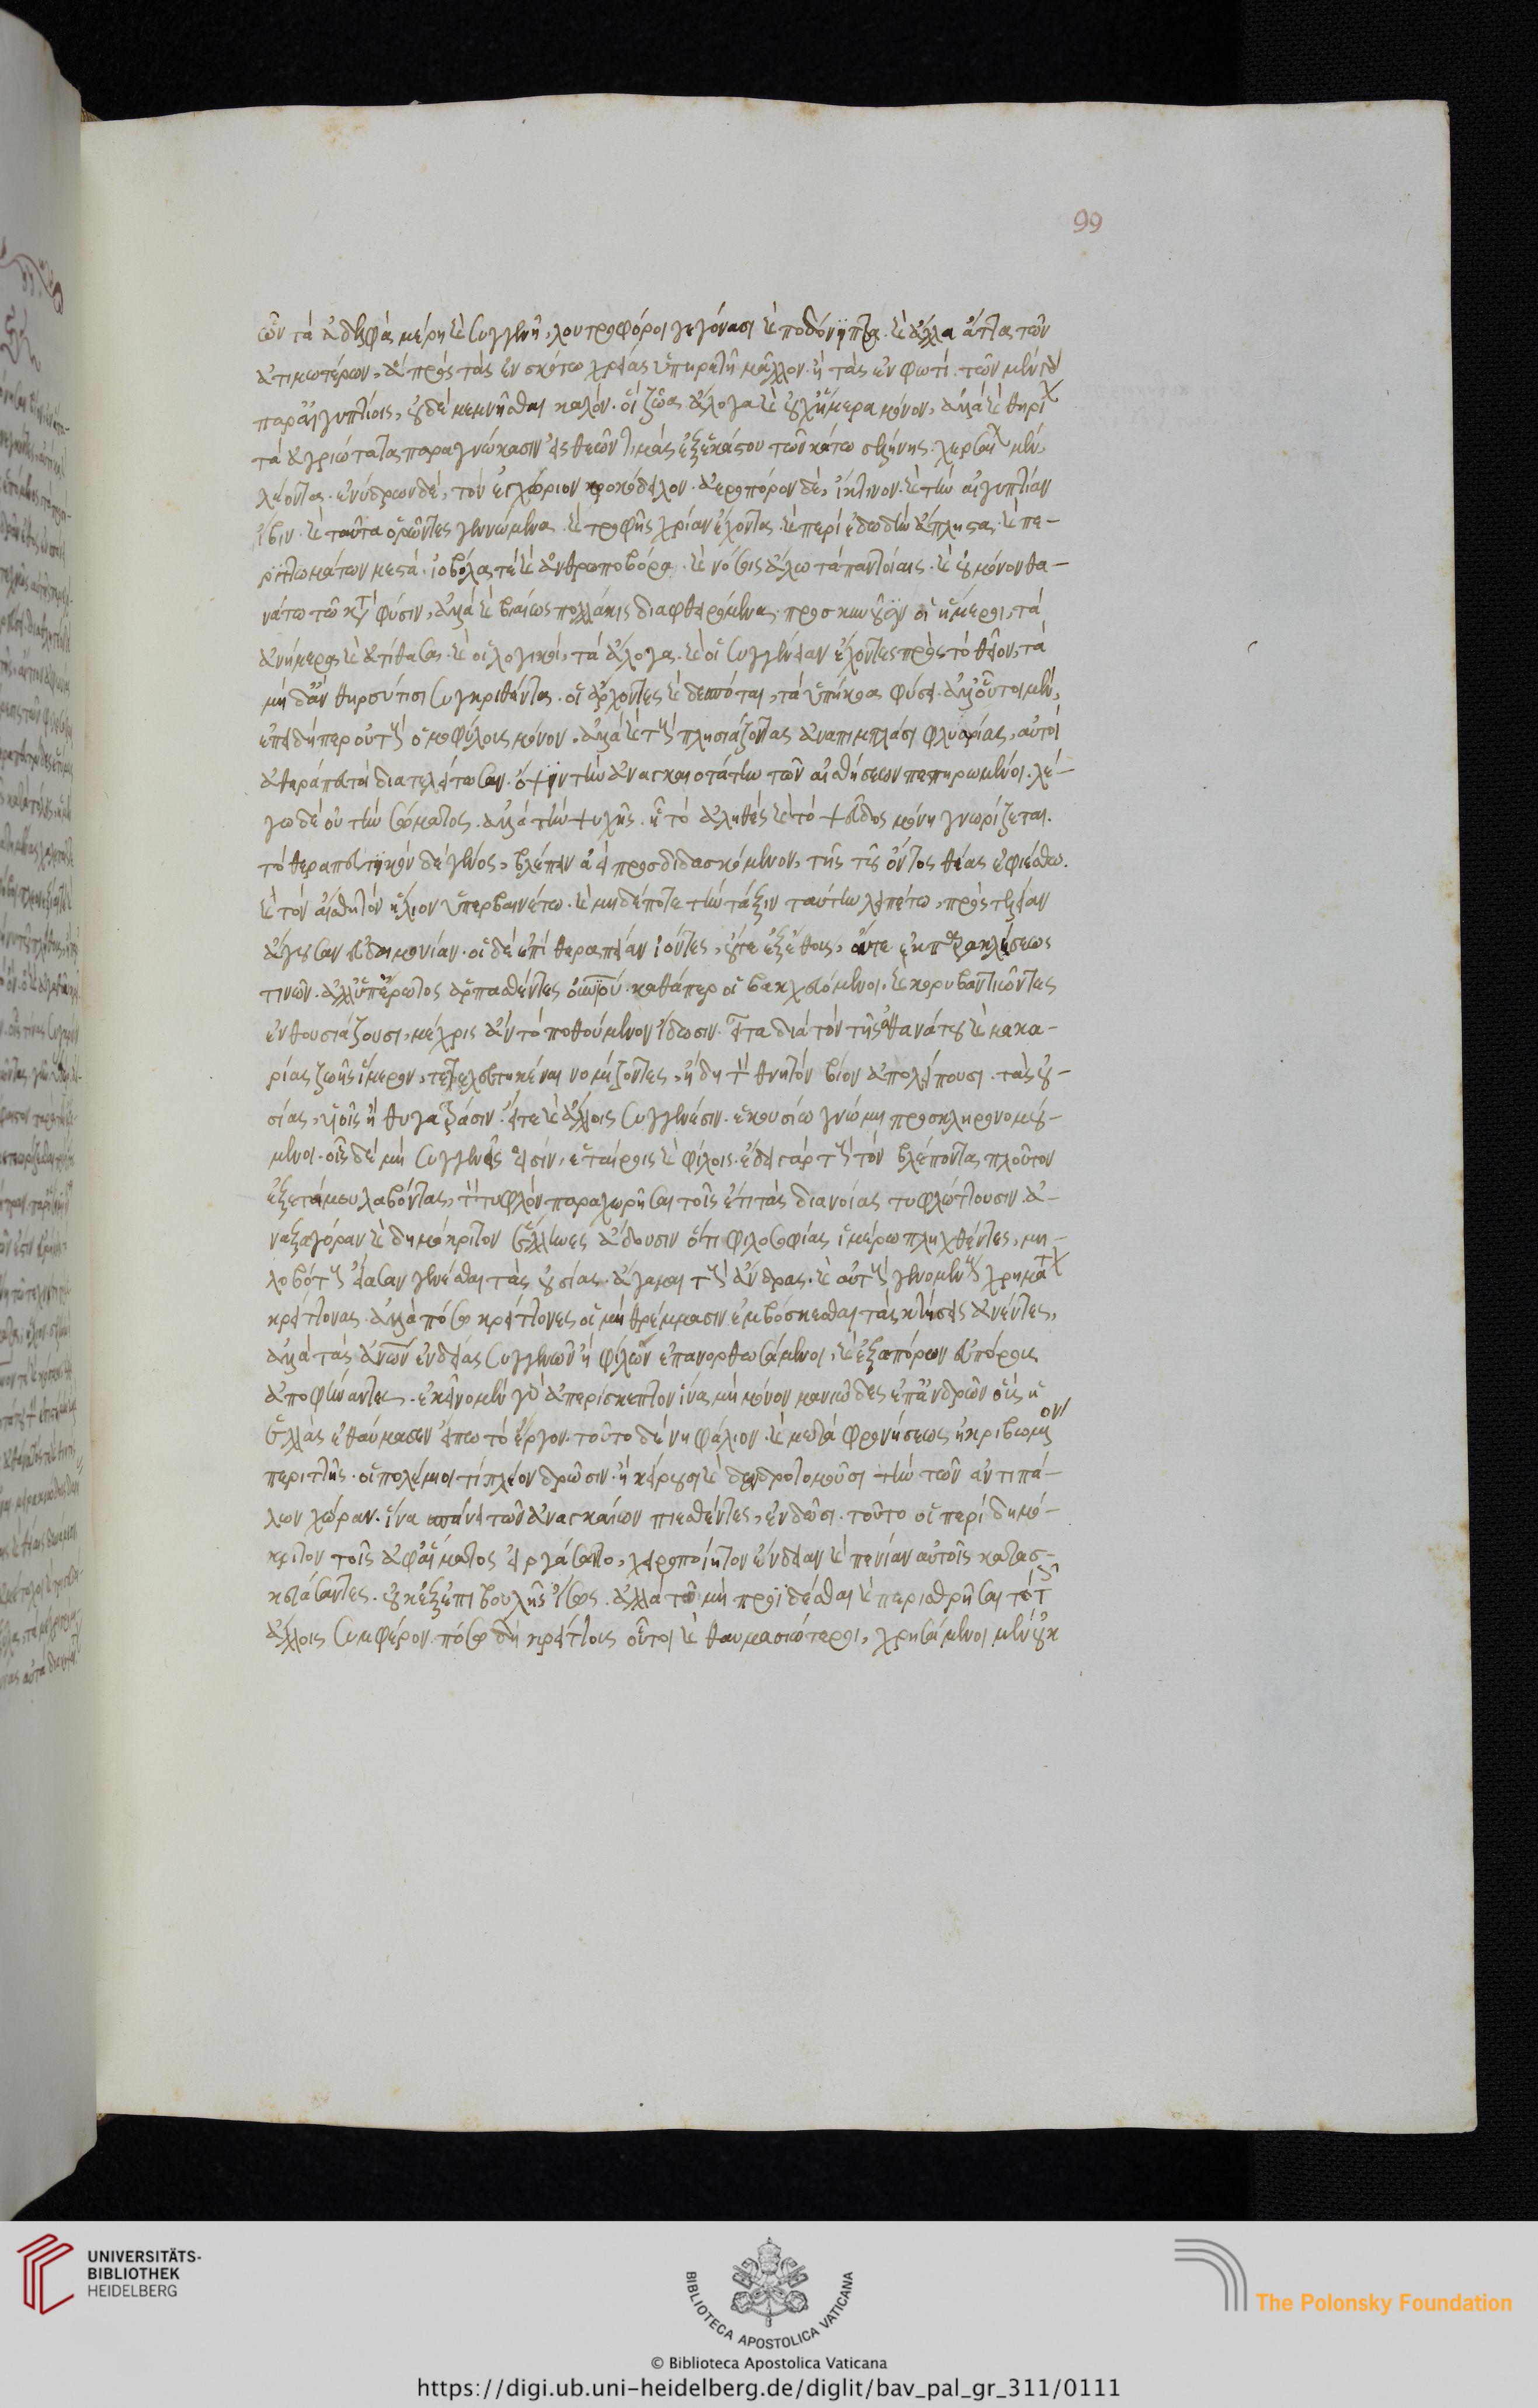 99
ὧν τὰ ἀδελφὰ μέρη καὶ συγγενῆ, λουτροφόροι γεγόνασι καὶ ποδόνιπτρα. καὶ ἄλλα ἄττα τῶν
ἀτιμωτέρων, ἃ πρὸς τὰς ἐν σκότω χρείας ὑπηρετεῖ μᾶλλον. ἢ τὰς ἐν φωτί. τῶν μὲν γὰρ
παρ᾽ αἰγυπτίοις, οὐδὲ μεμνῆσθαι καλόν. οἳ ζῶα ἄλογα καὶ οὐχ ἥμερα μόνον, ἀλλὰ καὶ θηρίων
τὰ ἀγριώτατα παραγνώκασιν εἰς θεῶν τιμὰς ἐξ ἑκάστου τῶν κάτω σελήνης. χερσαίων μὲν,
λέοντας. ἐνύδρων δὲ, τὸν ἐγχώριον κροκόδειλον. ἀεροπόρον δὲ, ἰκτῖνον. καὶ τὴν αἰγυπτίαν
ἶβιν. καὶ ταῦτα ὁρῶντες γεννώμενα. καὶ τροφῆς χρείαν ἔχοντα. καὶ περὶ ἐδωδὴν ἄπληστα. καὶ πε-
ριττωμάτων μεστά. ἰοβόλα τὲ καὶ ἀνθρωποβόρα. καὶ νόσοις ἁλωτὰ παντοίαις. καὶ οὐ μόνον θα-
νάτω τῶ κατὰ φύσιν, ἀλλὰ καὶ βιαίως πολλάκις διαφθειρόμενα. προσκυνοῦσιν οἱ ἥμεροι, τὰ
ἀνήμερα καὶ ἀτίθασα. καὶ οἱ λογικοί, τὰ ἄλογα. καὶ οἱ συγγένειαν ἔχοντες πρὸς τὸ θεῖον, τὰ
μὴ δ᾽ ἂν θηρσί τισι συγκριθέντα. οἱ ἄρχοντες καὶ δεσπόται, τὰ ὑπήκοα φύσει. ἀλλ᾽ οὗτοι μὲν,
ἐπειδήπερ οὐ τοὺς ὁμοφύλους μόνον, ἀλλὰ καὶ τοὺς πλησιάζοντας ἀναπιμπλᾶσι φλυαρίας, αὐτοὶ
ἀθεράπευτοι διατελείτωσαν. ὄψιν τὴν ἀναγκαιοτάτην τῶν αἰσθήσεων πεπηρωμένοι. λέ-
γω δὲ οὐ τὴν σώματος. ἀλλὰ τὴν ψυχῆς. ἧ τὸ ἀληθὲς καὶ τὸ ψεῦδος μόνη γνωρίζεται.
τὸ θεραπευτικὸν δὲ γένος, βλέπειν ἀεὶ προσδιδασκόμενον, τῆς τοῦ ὄντος θέας ἐφιέσθω.
καὶ τὸν αἰσθητὸν ἥλιον ὑπερβαινέτω. καὶ μηδέποτε τὴν τάξιν ταύτην λειπέτω, πρὸς τελείαν
ἄγουσαν εὐδαιμονίαν. οἱ δὲ ἐπὶ θεραπείαν ἰόντες, οὔτε ἐξ ἔθους, οὔτε ἐκ παρακλήσεως
τινῶν. ἀλλ᾽ ὑπ᾽ ἔρωτος ἁρπασθέντες οὐρανίου. καθάπερ οἱ βακχευόμενοι, καὶ κορυβαντιῶντες
ἐνθουσιάζουσι, μέχρις ἂν τὸ ποθούμενον ἴδωσιν. εἶτα διὰ τὸν τῆς ἀθανάτου καὶ μακα-
ρίας ζωῆς ἵμερον, τετελευτηκέναι νομίζοντες, ἤδη τὸν θνητὸν βίον ἀπολείπουσι. τὰς οὐ-
σίας, υἱοῖς ἢ θυγατράσιν. εἴτε καὶ ἄλλοις συγγενέσιν. ἑκουσίω γνώμη προσκληρονομού-
μενοι. οἷς δὲ μὴ συγγενεῖς εἰσίν, ἑταίροις καὶ φίλοις. ἔδει γὰρ τοὺς τὸν βλέποντας πλοῦτον
ἐξ ἑτοίμου λαβόντας, τὸν τυφλὸν παραχωρῆσαι τοῖς ἔτι τὰς διανοίας τυφλώττουσιν. ἀ-
ναξαγόραν καὶ δημόκριτον ἕλληνες ἄδουσιν ὅτι φιλοσοφίας ἱμέρω πληχθέντες, μη-
λοβότους εἴασαν γενέσθαι τὰς οὐσίας. ἄγαμαι τοὺς ἄνδρας. καὶ αὐτοὺς γενομένους χρημάτων
κρείττονας. ἀλλὰ πόσω κρείττονες οἱ μὴ θρέμμασιν ἐμβόσκεσθαι τὰς κτήσεις ἀνέντες,
ἀλλὰ τὰς ἀνθρώπων ἐνδείας συγγενῶν ἢ φίλων ἐπανορθωσάμενοι, καὶ ἐξ ἀπόρων εὐπόρους
ἀποφήναντες. ἐκεῖνο μὲν γὰρ ἀπερίσκεπτον ἵνα μὴ μόνον μανιῶδες ἐπ᾽ ἀνδρῶν οὓς ἡ
ἑλλὰς ἐθαύμασεν εἴπω τὸ ἔργον. τοῦτο δὲ νηφάλιον. καὶ μετὰ φρονήσεως ἠκριβωμένον
περιττῆς. οἱ πολέμιοι τί πλέον δρῶσιν. ἢ κείρουσι καὶ δενδροτομοῦσι τὴν τῶν ἀντιπά-
λων χώραν. ἵνα σπάνει τῶν ἀναγκαίων πιεσθέντες, ἐνδῶσι. τοῦτο οἱ περὶ δημό-
κριτον τοῖς ἀφ᾽ αἵματος εἰργάσαντο, χειροποίητον ἔνδειαν καὶ πενίαν αὐτοῖς κατασ-
κευάσαντες. οὐκ ἐξ ἐπιβουλῆς ἴσως. ἀλλὰ τῶ μὴ προϊδέσθαι καὶ περιαθρῆσαι τὸ τοῖς
ἄλλοις συμφέρον. πόσω δὴ κρείττους οὗτοι καὶ θαυμασιώτεροι, χρησάμενοι μὲν οὐκ
UNIVERSITÄTS-
BIBLIOTHEK
HEIDELBERG
BIBLIOTECA APOSTOLICA VATICANA
The Polonsky Foundation
© Biblioteca Apostolica Vaticana
https://digi.ub.uni-heidelberg.de/diglit/bav_pal_gr_311/0111